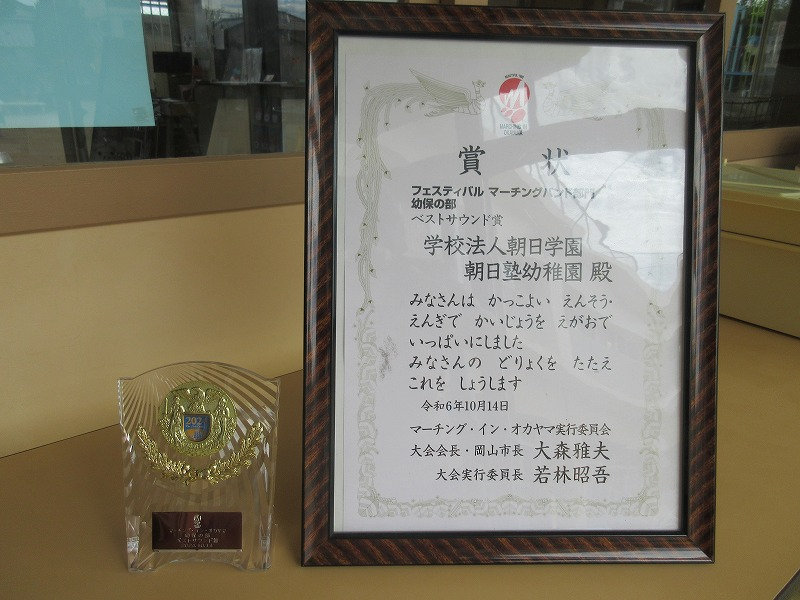 賞 状
フェスティバル マーチングバンド部門
幼保の部
ベストサウンド賞
学校法人朝日学園
朝日塾幼稚園 殿
みなさんは かっこよい えんそう・
えんぎで かいじょうを えがおで
いっぱいにしました
みなさんの どりょくを たたえ
これを しょうします
令和6年10月14日
マーチング・イン・オカヤマ実行委員会
大会会長・岡山市長 大森雅夫
大会実行委員長 若林昭吾
マーチング・イン・オカヤマ
幼保の部
ベストサウンド賞